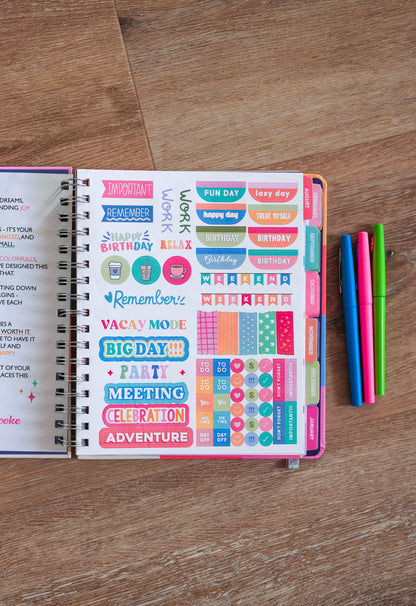 DREAMS,
NDING JOY
- IT'S YOUR
ANIZED, AND
SMALL.
COLORFULLY,
VE DESIGNED THIS
THAT.
TTING DOWN
EGINS -
VE EACH
S A
WORTH IT,
E TO HAVE
ELF AND
APPY.
T OF YOUR
LACES THIS
ooke
IMPORTANT
REMEMBER
WORK
WORK
HAPPY
BIRTHDAY
RELAX
Remember
VACAY MODE
BIG DAY!!!
PARTY
MEETING
CELEBRATION
ADVENTURE
FUN DAY
lazy day
happy day
TREAT YO'SELF
BIRTHDAY
BIRTHDAY
Birthday
BIRTHDAY
WEEKEND
WEEKEND
TO DO
TO DO
TO DO
TO DO
Yes
Yes
ME TIME
ME TIME
DAY OFF
DAY OFF
DON'T FORGET
DON'T FORGET
IMPORTANTE
IMPORTANTE
AUGUST
SEPTEMBER
OCTOBER
NOVEMBER
DECEMBER
JANUARY
FEBRUARY